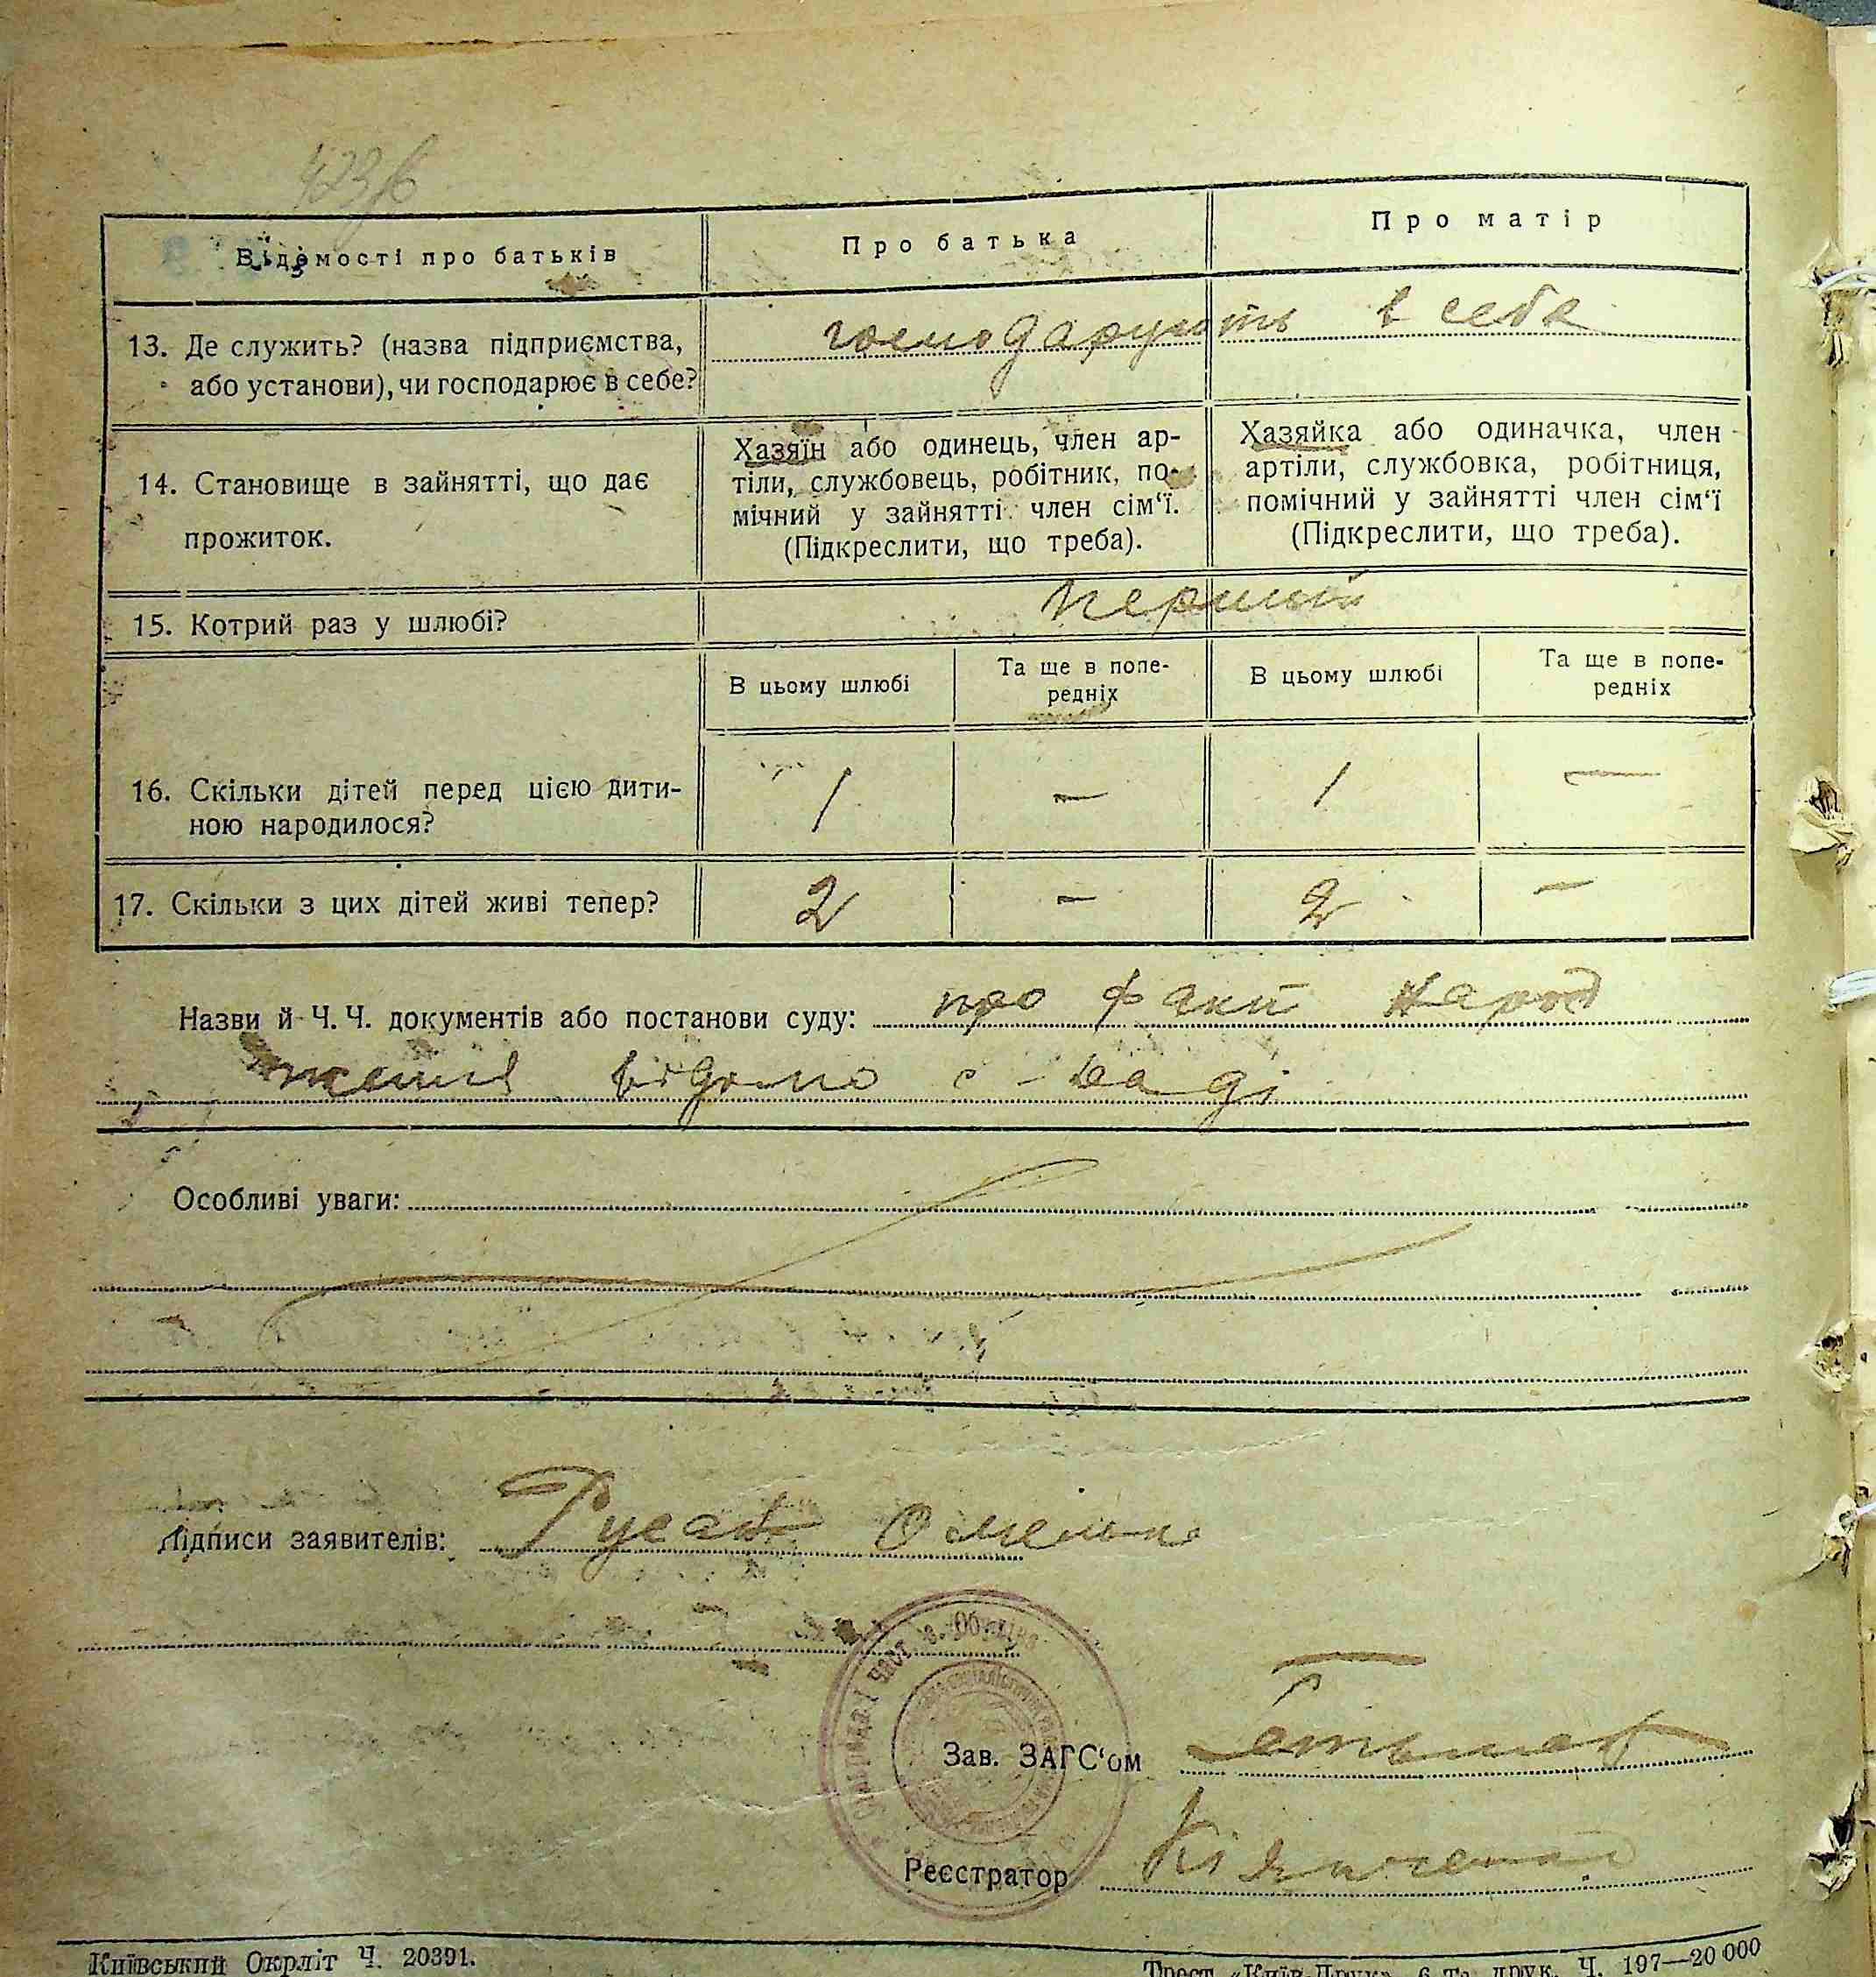 423/б
Відомості про батьків
Про батька
Про матір
13. Де служить? (назва підприємства,
або установи), чи господарює в себе?
господарують в себе
14. Становище в зайнятті, що дає
прожиток.
Хазяїн або одинець, член ар-
тіли, службовець, робітник, по-
мічний у зайнятті член сім‘ї.
(Підкреслити, що треба).
Хазяйка або одиначка, член
артіли, службовка, робітниця,
помічний у зайнятті член сім‘ї
(Підкреслити, що треба).
15. Котрий раз у шлюбі?
Перший
В цьому шлюбі
Та ще в попе-
редніх
В цьому шлюбі
Та ще в попе-
редніх
16. Скільки дітей перед цією дити-
ною народилося?
1 — 1 —
17. Скільки з цих дітей живі тепер?
2 — 2 —
Назви й Ч. Ч. документів або постанови суду: про факт народ
ження відомо с-раді
Особливі уваги:
Підписи заявителів: Русак Омелько
Зав. ЗАГС‘ом Гетьман
Реєстратор
Київський Окрліт Ч. 20391.
Трест «Київ-Друк» 6-та друк. Ч. 197—20 000